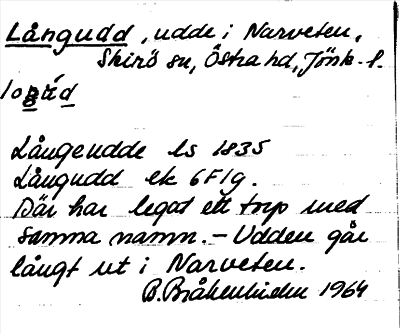 Långudd, udde i Narveten,
Skirö sn, Östra hd, Jönk. l.
Långeudde ls 1835
Långudd ek 6F1g.
Där har legat ett torp med
samma namn. – Udden går
långt ut i Narveten.
B. 1964